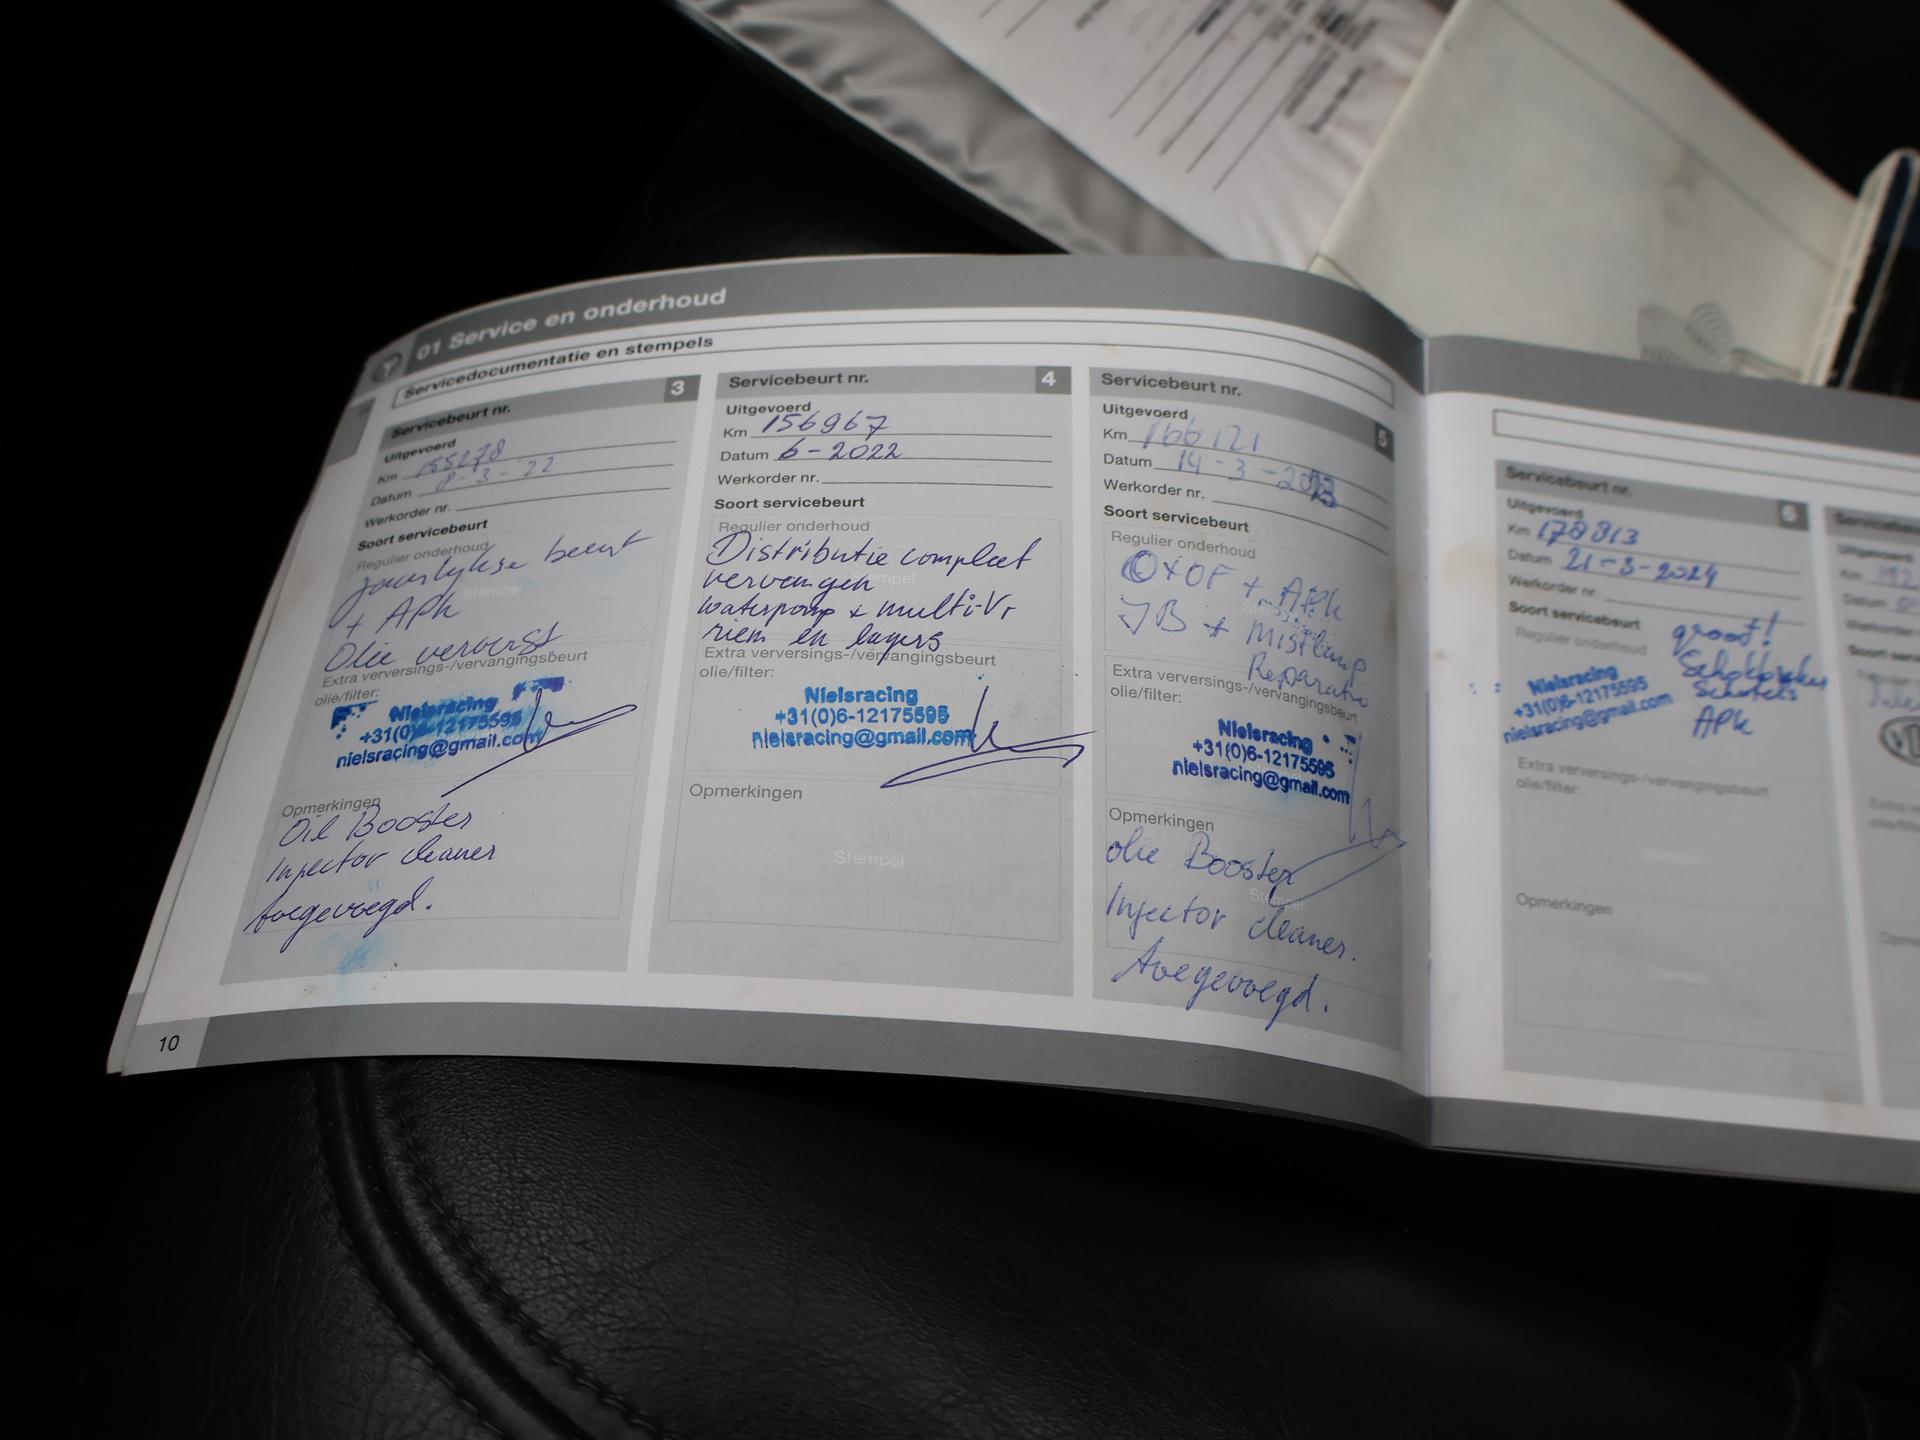 01 Service en onderhoud
Servicedocumentatie en stempels
Servicebeurt nr. 3
Uitgevoerd
Km 155278
Datum 8-3-22
Werkorder nr.
Soort servicebeurt
Regulier onderhoud
jaarlykse beurt
Stempel
+ APk
Olie ververst
Extra verversings-/vervangingsbeurt
olie/filter:
Nielsracing
+31(0)6-12175595
nielsracing@gmail.com
Opmerkingen
Oil Booster
Injector cleaner
toegevoegd.
10
Servicebeurt nr. 4
Uitgevoerd
Km 156967
Datum 6-2022
Werkorder nr.
Soort servicebeurt
Regulier onderhoud
Distributie compleet
vervangen
Stempel
waterpomp + multi-Vr
riem en lagers
Extra verversings-/vervangingsbeurt
olie/filter:
Nielsracing
+31(0)6-12175595
nielsracing@gmail.com
Opmerkingen
Stempel
Servicebeurt nr. 5
Uitgevoerd
Km 166121
Datum 14-3-2023
Werkorder nr.
Soort servicebeurt
Regulier onderhoud
O+OF + APk
JB + Mistlamp
Reparatie
Extra verversings-/vervangingsbeurt
olie/filter:
Nielsracing
+31(0)6-12175595
nielsracing@gmail.com
Opmerkingen
olie Booster
Stempel
Injector cleaner.
toegevoegd.
Servicebeurt nr. 6
Uitgevoerd
Km 178813
Datum 21-3-2024
Werkorder nr.
Soort servicebeurt
groot!
Regulier onderhoud
Schokbrekers
Schotels
APk
Nielsracing
+31(0)6-12175595
nielsracing@gmail.com
Extra verversings-/vervangingsbeurt
olie/filter:
Stempel
Opmerkingen
Stempel